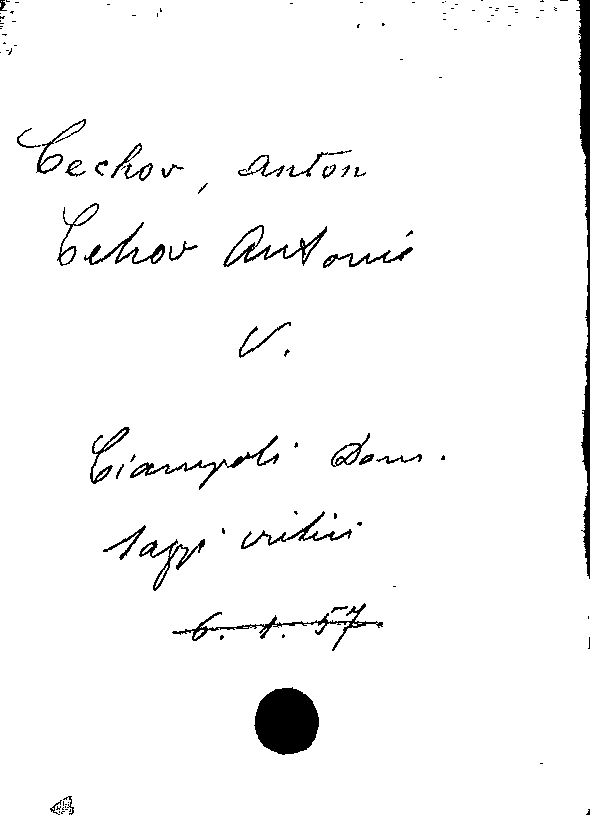 Cechov, Anton
Cehov Antonio
V.
Ciampoli Dom.
Saggi critici
6. 1. 57.